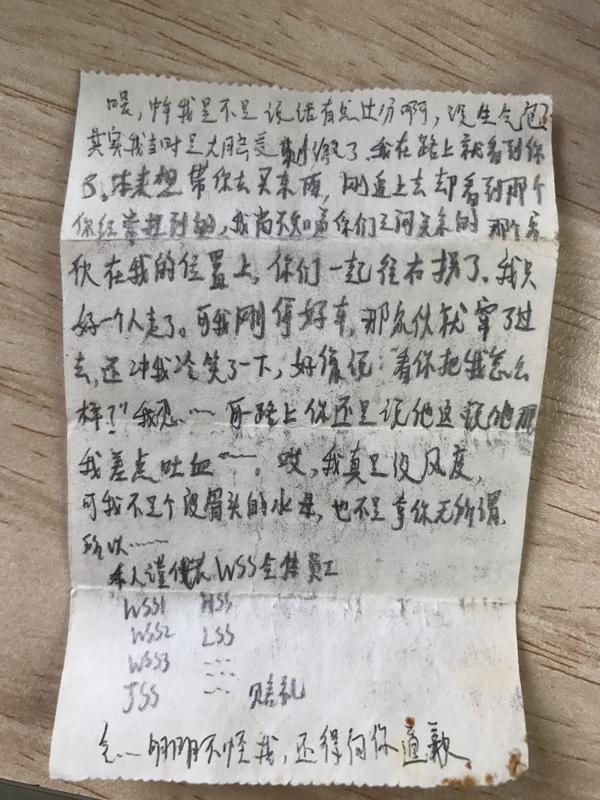 喂,中午我是不是说话有点过分啊,没生气包
其实我当时是大脑受刺激了。我在路上就看到你
了。本来想带你去买东西,刚追上去却看到那个
你经常提到的,我尚不知道你们之间关系的那个家
伙在我的位置上,你们一起往右拐了。我只
好一个人走了。可我刚停好车,那家伙就窜了过
去,还冲我冷笑了一下,好像说:“看你把我怎么
样?”我忍……可路上你还是说他这说他那
我差点吐血……。哎,我真是没风度,
可我不是个没骨头的水母,也不是拿你无所谓,
所以……
本人谨代表WSS全体员工
WSS1 HSS
WSS2 LSS
WSS3 ……
JSS …… 赔礼
明明不怪我,还得向你道歉